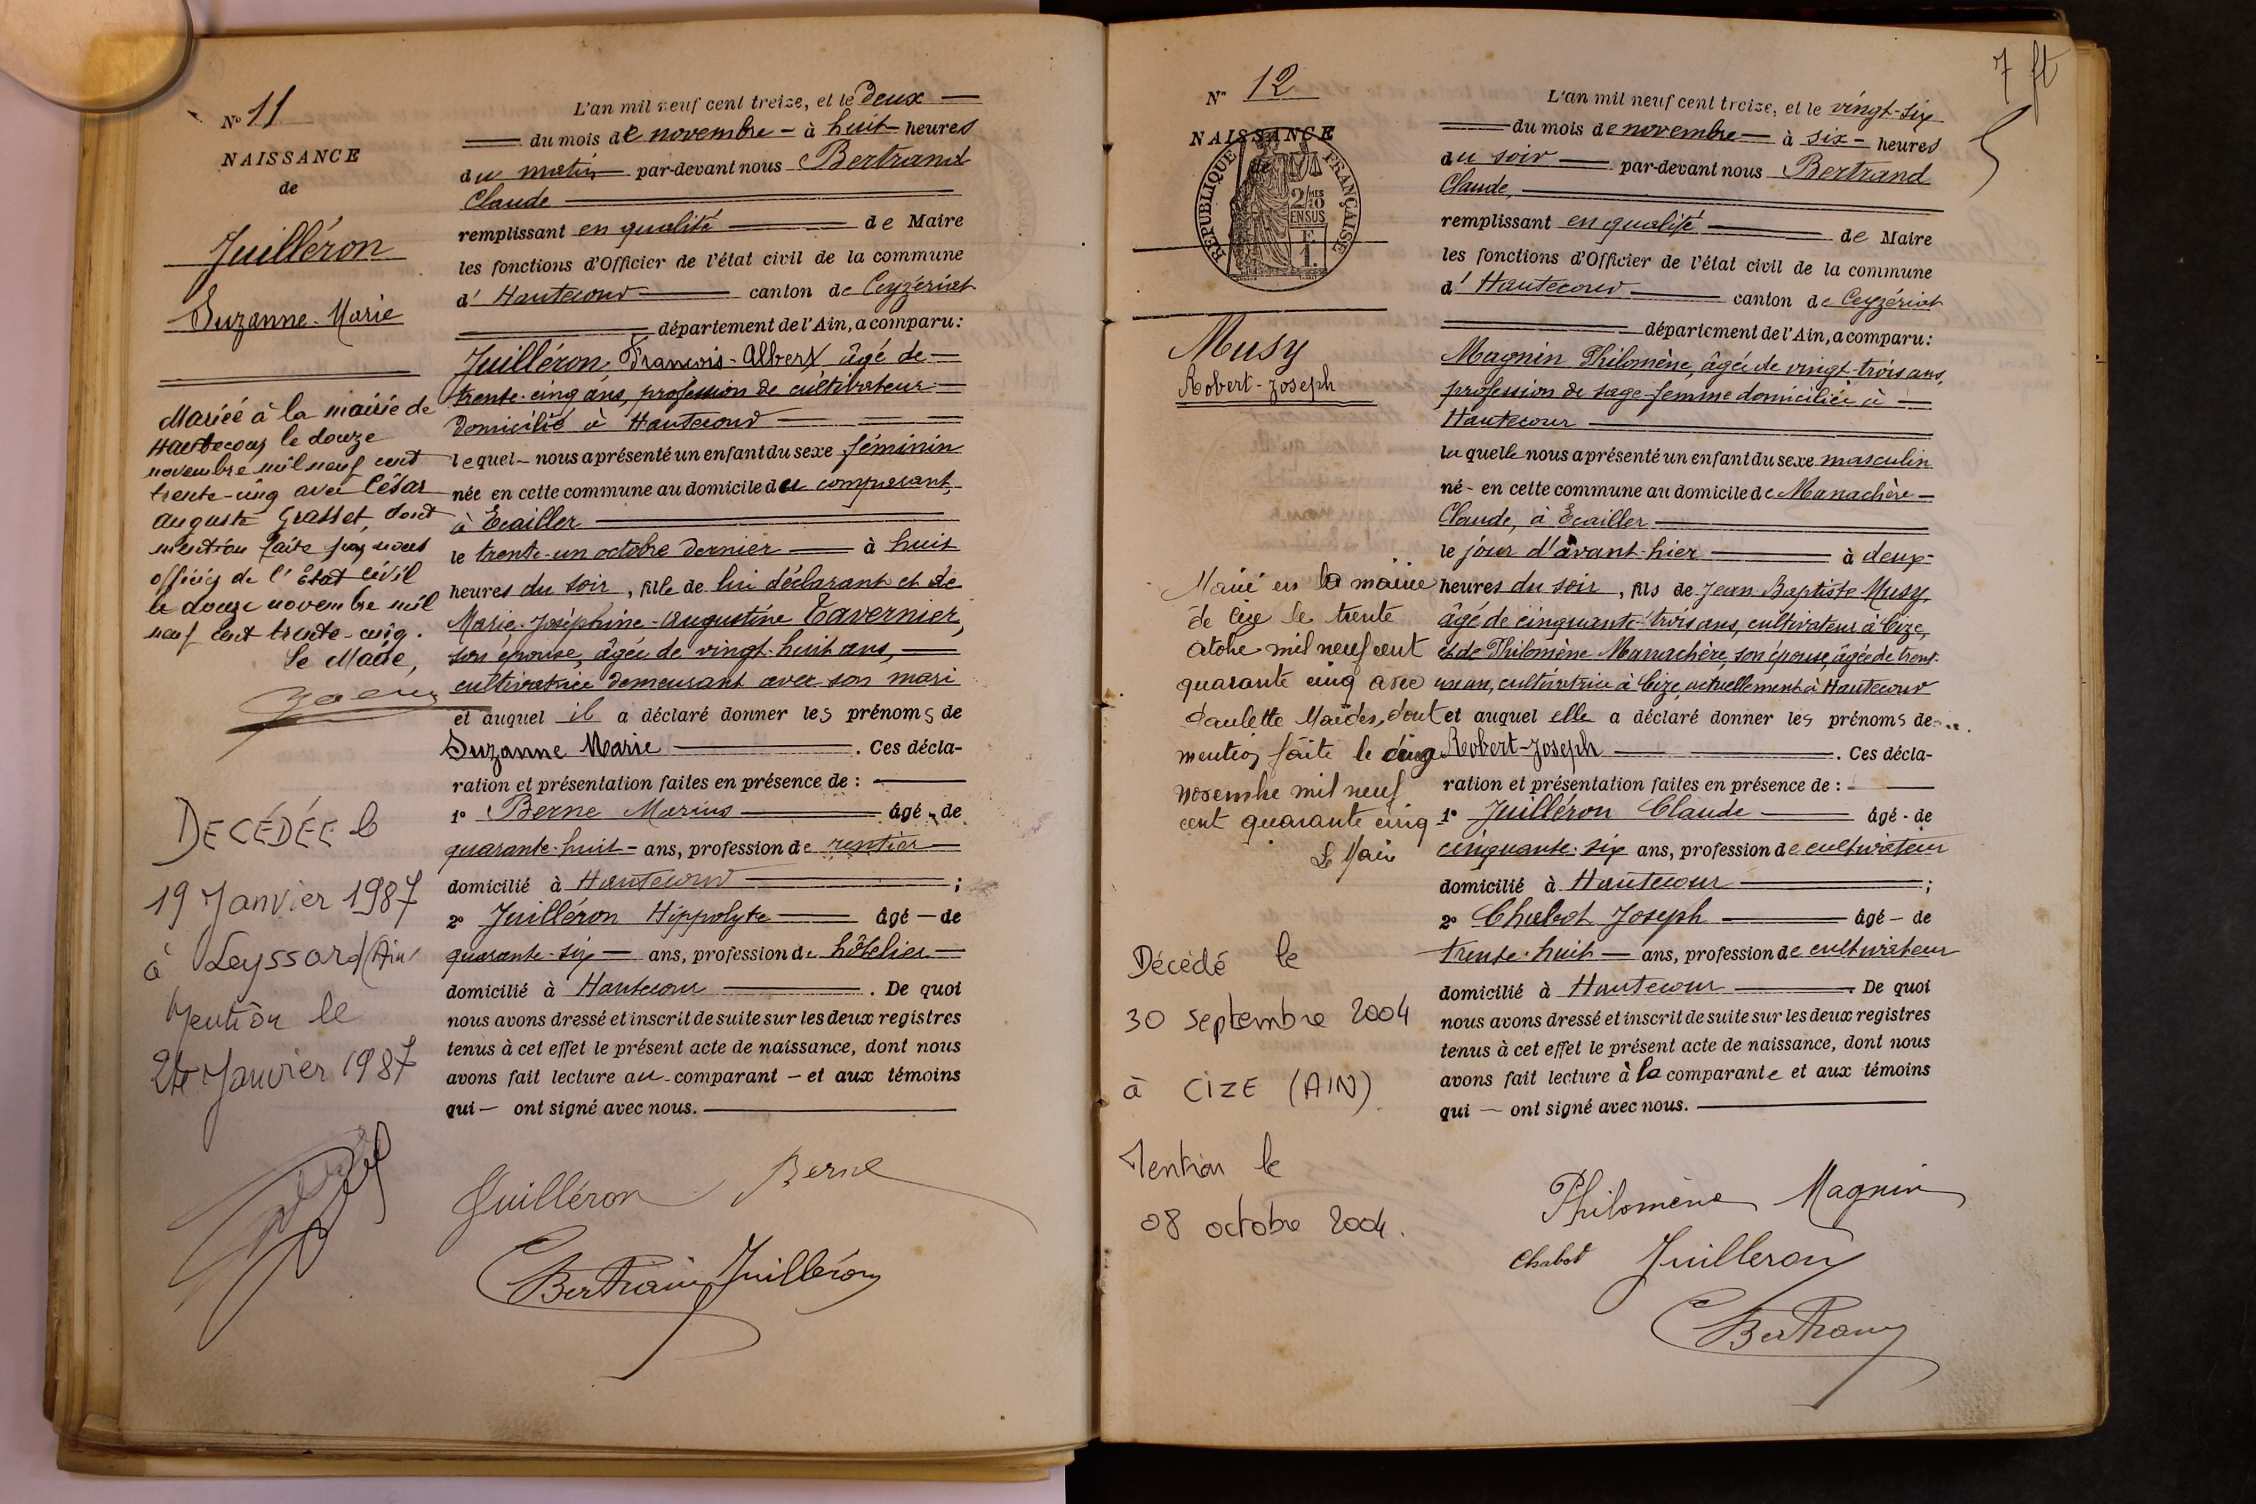 N° 11
NAISSANCE
de
Juilléron
Suzanne-Marie
Mariée à la mairie de
Hautecour le douze
novembre mil neuf cent
trente-cinq avec César
Auguste Grasset, dont
mention faite par nous
officier de l'État civil
le douze novembre mil
neuf cent trente-cinq.
Le Maire,
DECÉDÉE le
19 Janvier 1987
à Leyssard (Ain)
Mention le
Janvier 1987
L'an mil neuf cent treize, et le deux
du mois de novembre à huit heures
du matin par-devant nous Bertrand
Claude
remplissant en qualité de Maire
les fonctions d'Officier de l'état civil de la commune
d'Hautecour canton de Ceyzériat
département de l'Ain, a comparu:
Juilléron, François-Albert, âgé de
trente-cinq ans, profession de cultivateur
domicilié à Hautecour
lequel nous a présenté un enfant du sexe féminin
née en cette commune au domicile du comparant,
à Ecailler
le trente-un octobre dernier à huit
heures du soir, fille de lui déclarant et de
Marie-Joséphine-Augustine Tavernier,
son épouse, âgée de vingt-huit ans,
cultivatrice demeurant avec son mari
et auquel il a déclaré donner les prénoms de
Suzanne Marie. Ces décla-
ration et présentation faites en présence de :
1° Berne Marius âgé de
quarante-huit ans, profession de rentier
domicilié à Hautecour ;
2° Juilléron Hippolyte âgé de
quarante-six ans, profession de hôtelier
domicilié à Hautecour. De quoi
nous avons dressé et inscrit de suite sur les deux registres
tenus à cet effet le présent acte de naissance, dont nous
avons fait lecture au comparant et aux témoins
qui ont signé avec nous.
Juilléron Berne
CBertrand Juilléron
7 ft
N° 12
NAISSANCE
de
REPUBLIQUE FRANÇAISE
2/10
EN SUS
F.
1.
Musy
Robert-Joseph
Marié en la mairie
de Cize le trente
atobre mil neuf cent
quarante cinq avec
Paulette dont
mention faite le cinq
novembre mil neuf
cent quarante cinq
Le Maire
Décédé le
30 septembre 2004
à CIZE (AIN)
Mention le
08 octobre 2004.
L'an mil neuf cent treize, et le vingt-six
du mois de novembre à six heures
du soir par-devant nous Bertrand
Claude,
remplissant en qualité de Maire
les fonctions d'Officier de l'état civil de la commune
d'Hautecour canton de Ceyzériat
département de l'Ain, a comparu:
Magnin Philomène, âgée de vingt-trois ans,
profession de sage-femme domiciliée à
Hautecour
la quelle nous a présenté un enfant du sexe masculin
né en cette commune au domicile de Manachère
Claude, à Ecailler
le jour d'avant-hier à deux
heures du soir, fils de Jean Baptiste Musy,
âgé de cinquante-trois ans, cultivateur à Cize,
et de Philomène Manachère, son épouse, âgée de trent-
un an, cultivatrice à Cize, actuellement à Hautecour
et auquel elle a déclaré donner les prénoms de
Robert-Joseph. Ces décla-
ration et présentation faites en présence de :
1° Juilléron Claude âgé de
cinquante-six ans, profession de cultivateur
domicilié à Hautecour ;
2° Chabot Joseph âgé de
trente-huit ans, profession de cultivateur
domicilié à Hautecour. De quoi
nous avons dressé et inscrit de suite sur les deux registres
tenus à cet effet le présent acte de naissance, dont nous
avons fait lecture à la comparante et aux témoins
qui ont signé avec nous.
Philomène Magnin
Chabot Juilleron
CBertrand